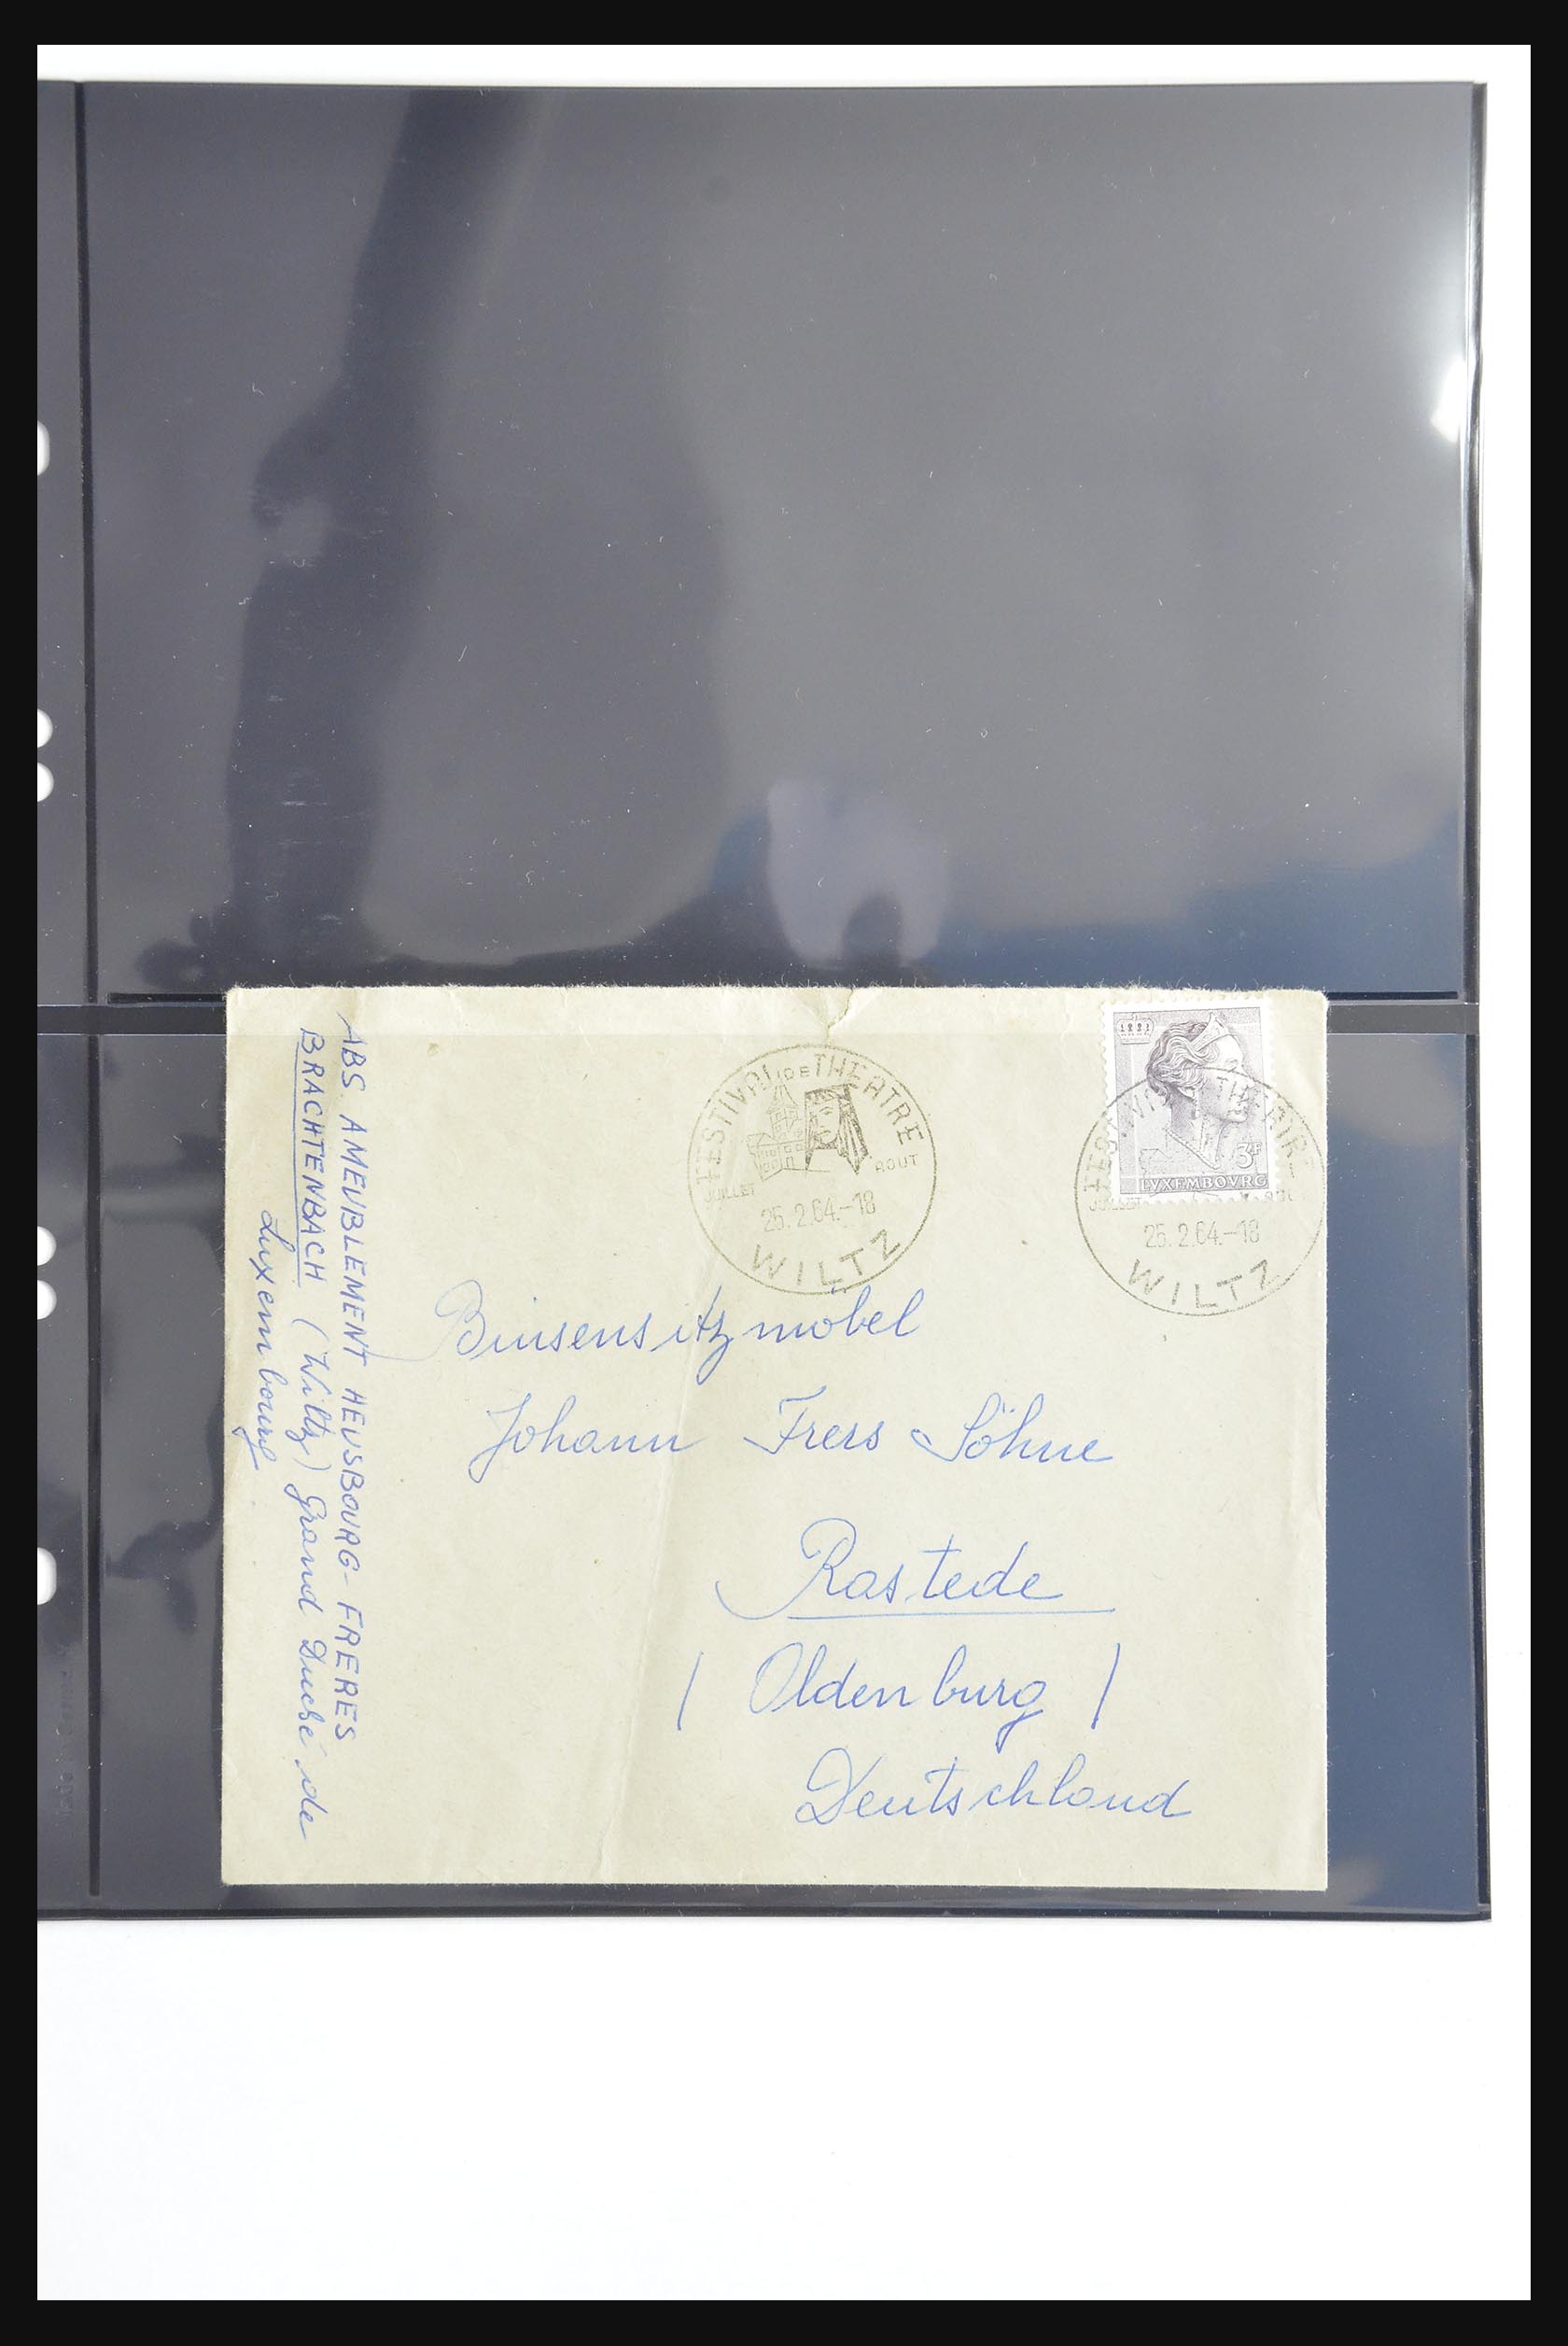 ABS AMEUBLEMENT HEUSBOURG-FRERES
BRACHTENBACH (Wiltz) Grand Duché de
Luxembourg
FESTIVAL DE THEATRE
JUILLET
AOUT
25.2.64.-18
WILTZ
3F
LVXEMBOVRG
FESTIVAL THEATRE
JUILLET
25.2.64.-18
WILTZ
Binsensitzmöbel
Johann Frers Söhne
Rastede
/ Oldenburg /
Deutschland